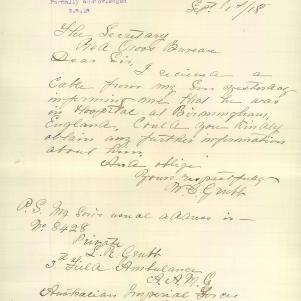 Formally acknowledged
Sept 17/18
The Secretary
Red Cross Bureau
Dear Sir,
I recieved a
Cable from my Son yesterday
informing me that he was
in Hospital at Birmingham,
England, Could you kindly
obtain any further information
about him
And oblige
Yours respectfully
W C Grubb
P.S. My Son's usual address is—
No 8428
Private
L. R. Grubb
3rd Field Ambulance
A.A.M.C
Australian Imperial Forces